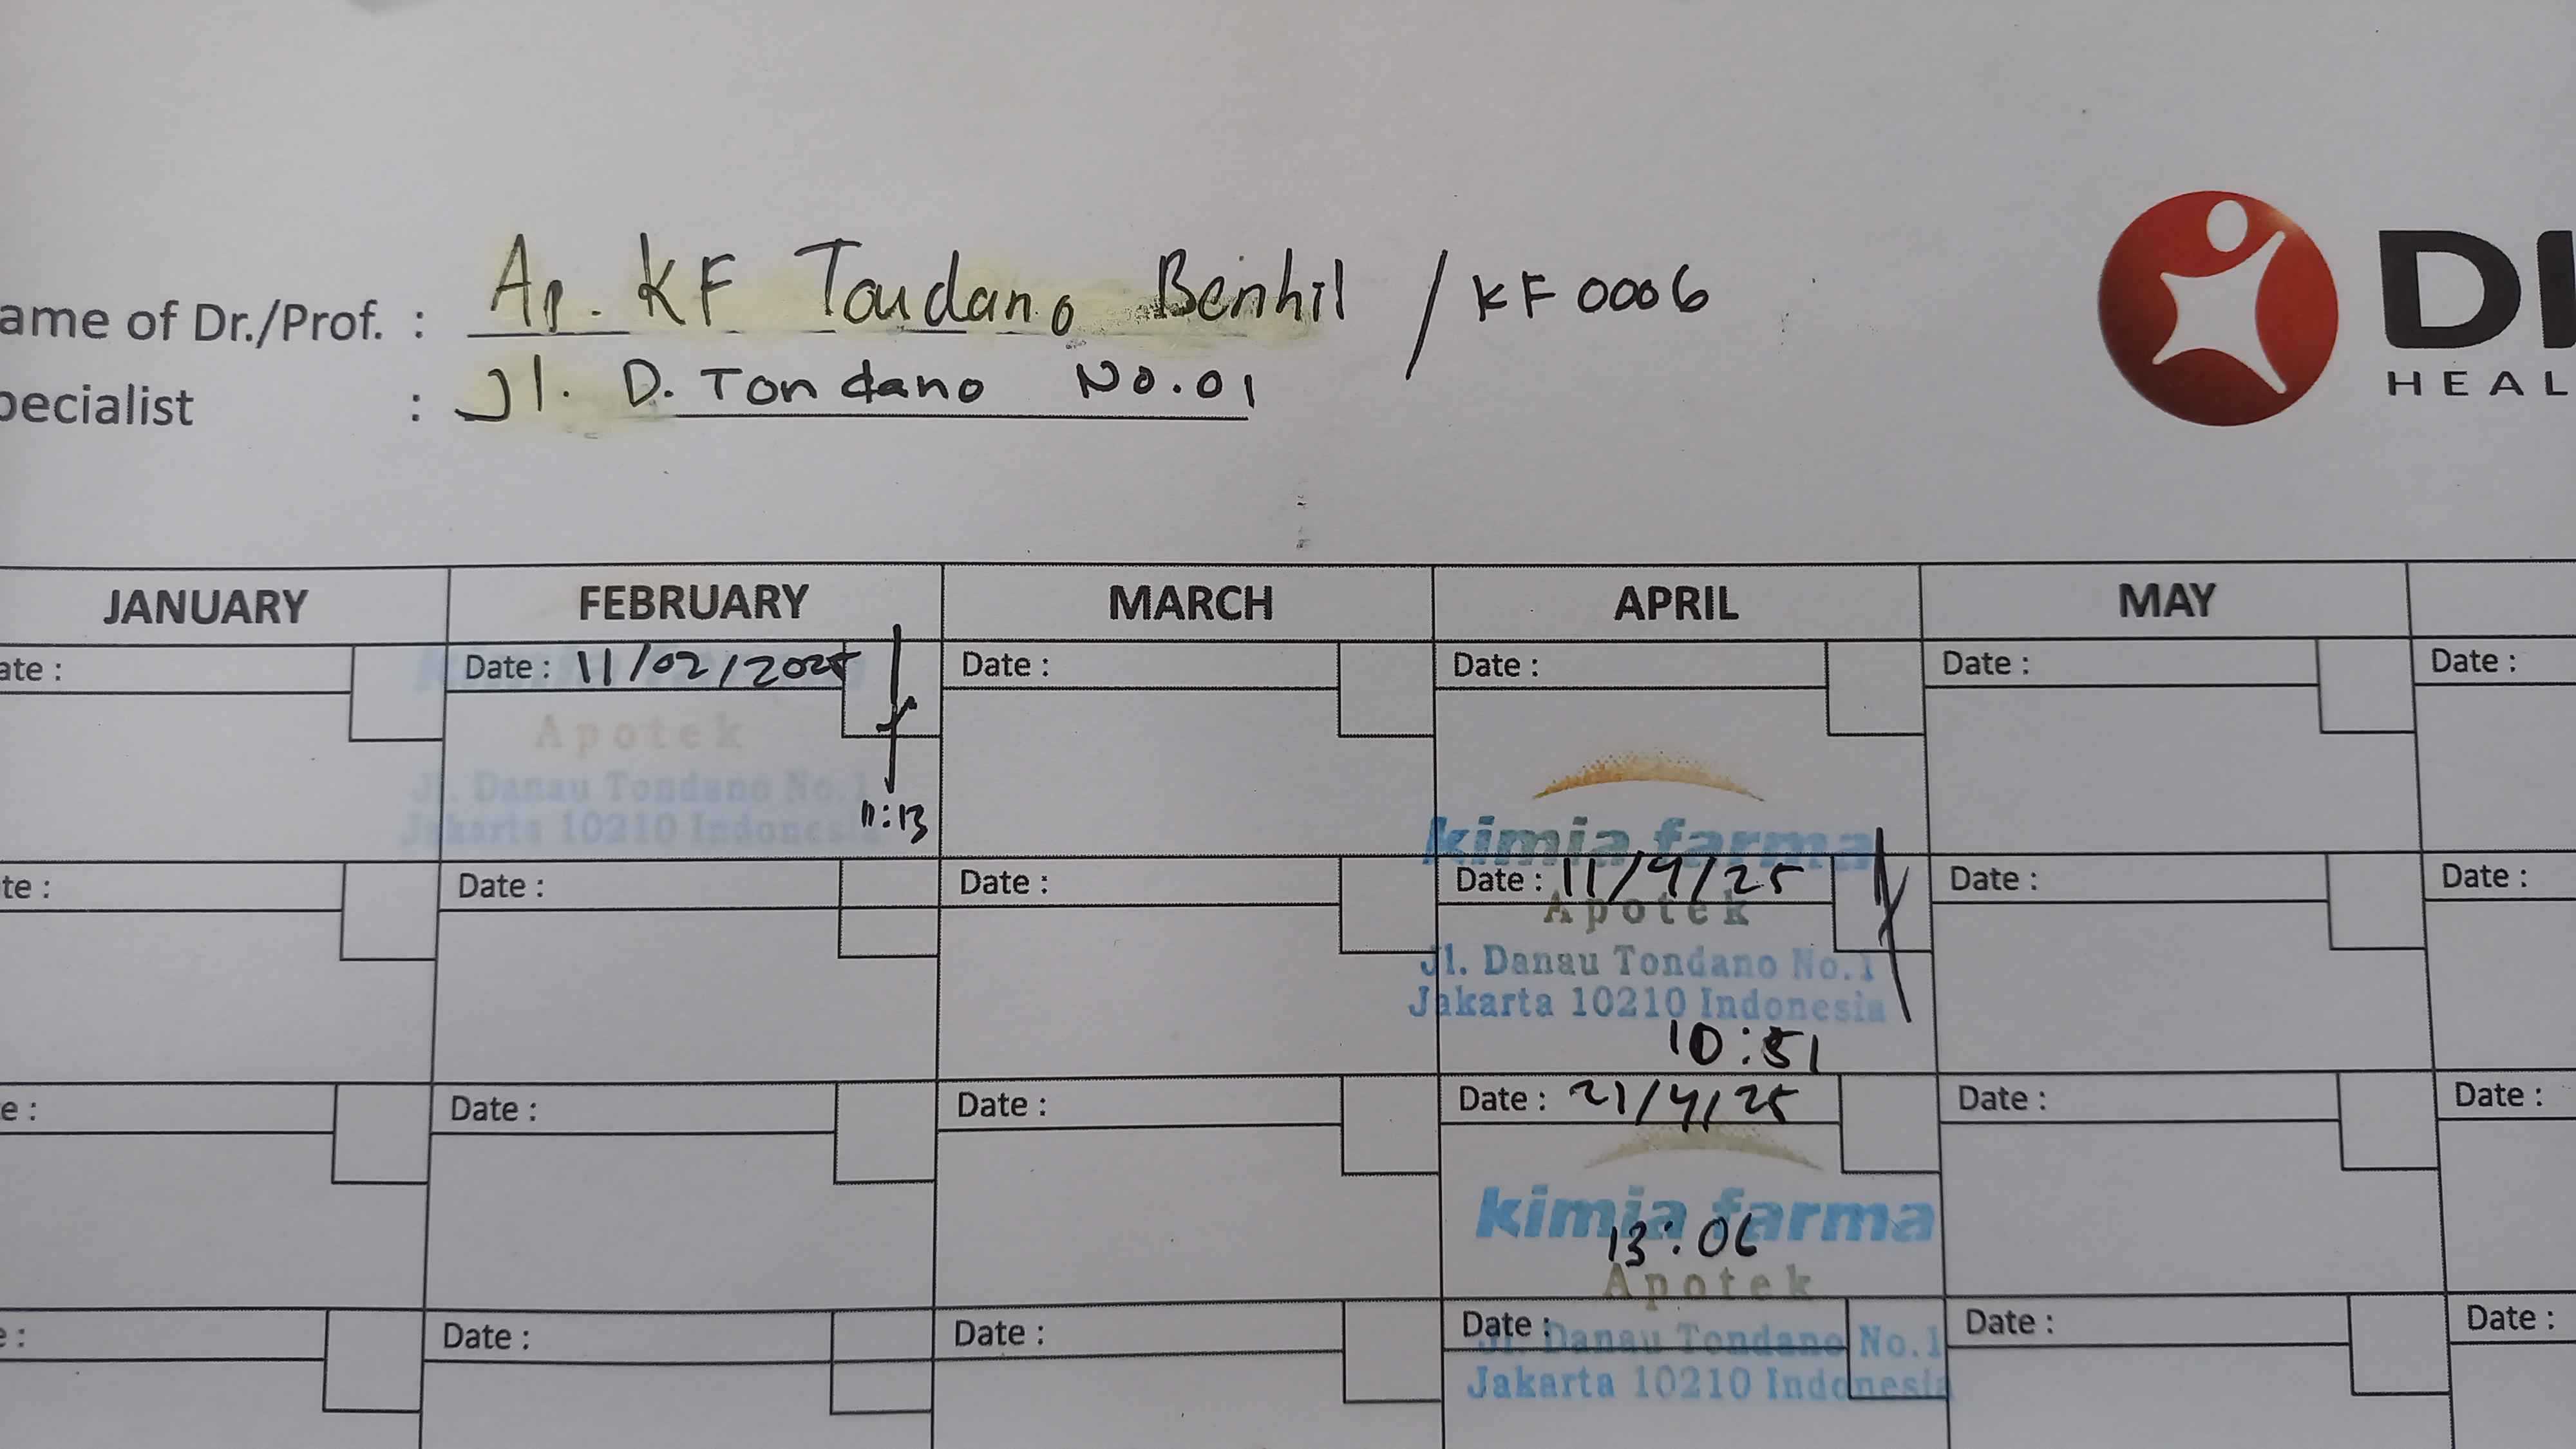 ame of Dr./Prof. : Ap. KF Tondano Benhil / KF 0006
pecialist : Jl. D. Tondano No.01
DI
HEAL
JANUARY FEBRUARY MARCH APRIL MAY
ate : Date : 11/02/2025 Date : Date : Date : Date :
Apotek
Jl. Danau Tondano No.1
Jakarta 10210 Indonesia
11:13
kimia farma
te : Date : Date : Date : 11/4/25 Date : Date :
Apotek
Jl. Danau Tondano No.1
Jakarta 10210 Indonesia
10:51
e : Date : Date : Date : 21/4/25 Date : Date :
kimia farma
13:06
Apotek
e : Date : Date : Date : Date : Date :
Jl. Danau Tondano No.1
Jakarta 10210 Indonesia